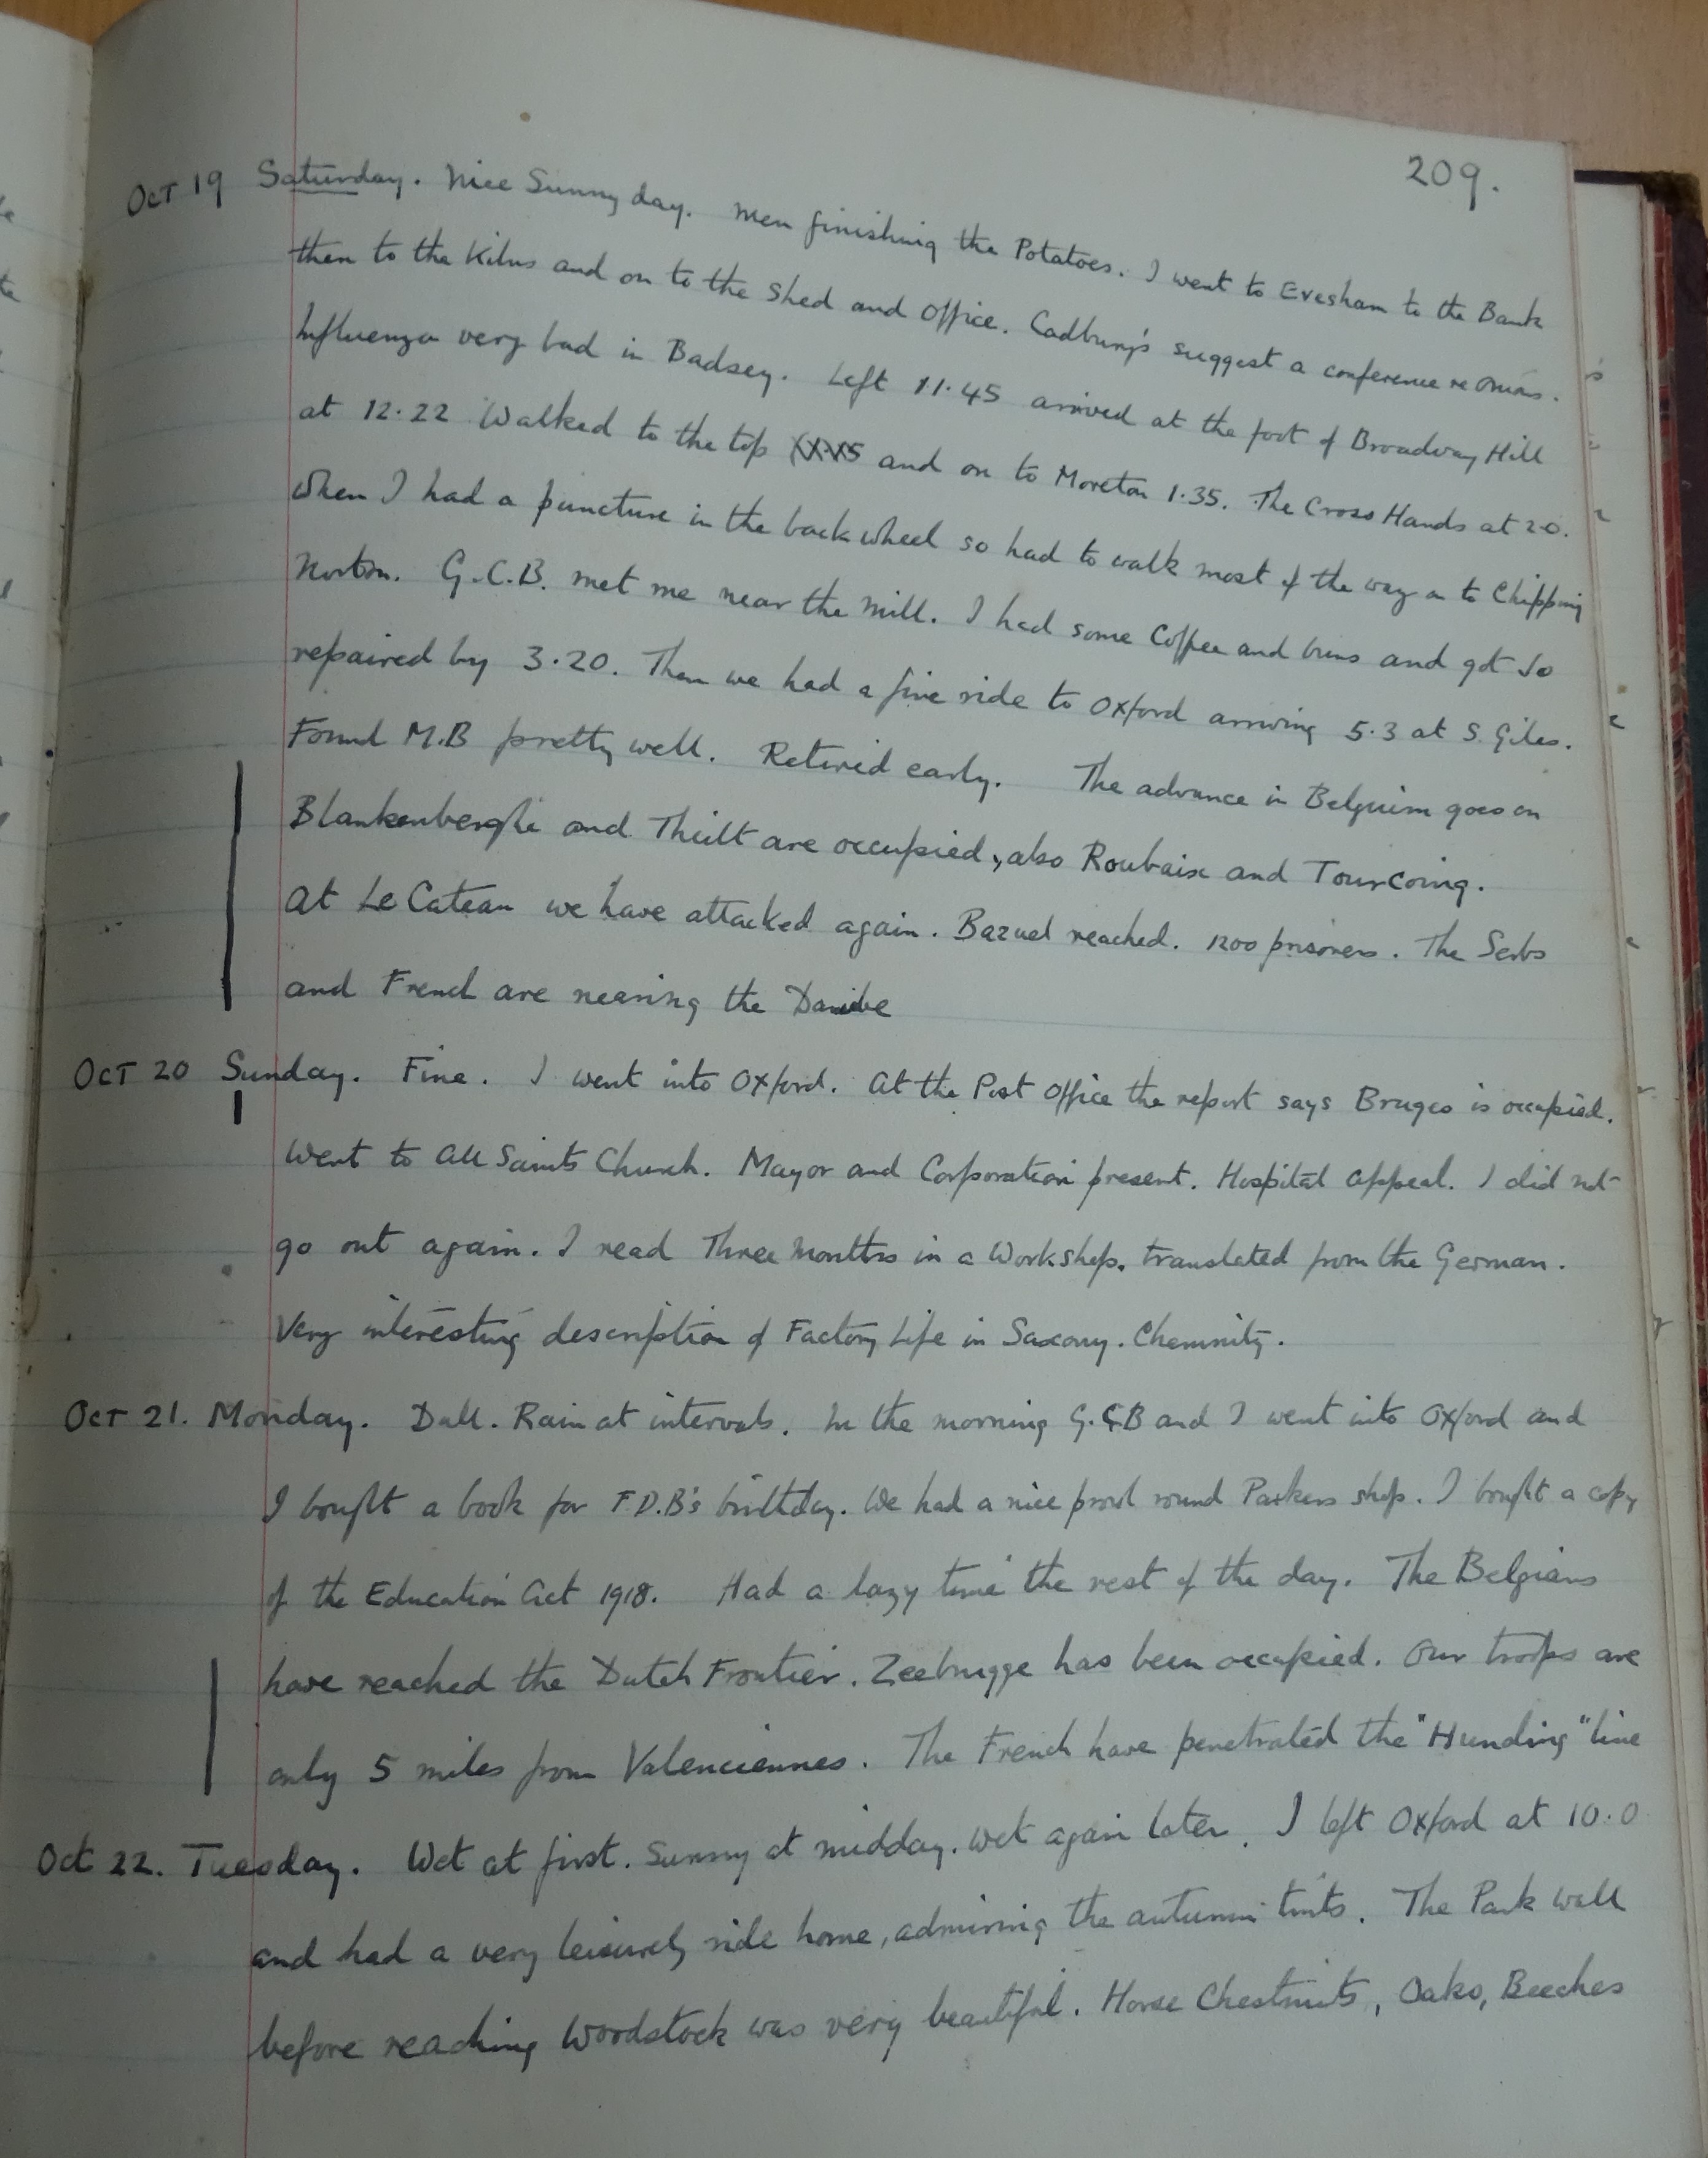 209.
Oct 19 Saturday. Nice Sunny day. Men finishing the Potatoes. I went to Evesham to the Bank
then to the Kilns and on to the Shed and Office. Cadbury's suggest a conference re Onions.
Influenza very bad in Badsey. Left 11.45 arrived at the foot of Broadway Hill
at 12.22 Walked to the top and on to Moreton 1.35. The Cross Hands at 2.0.
When I had a puncture in the back wheel so had to walk most of the way on to Chipping
Norton. G.C.B. met me near the Mill. I had some Coffee and buns and got so
repaired by 3.20. Then we had a fine ride to Oxford arriving 5.3 at S. Giles.
Found M.B pretty well. Retired early. The advance in Belgium goes on
Blankenberghe and Thielt are occupied, also Roubaix and Tourcoing.
At Le Cateau we have attacked again. Bazuel reached. 1200 prisoners. The Serbs
and French are nearing the Danube
Oct 20 Sunday. Fine. I went into Oxford. At the Post Office the report says Bruges is occupied.
Went to All Saints Church. Mayor and Corporation present. Hospital Appeal. I did not
go out again. I read Three Months in a Workshop. translated from the German.
Very interesting description of Factory Life in Saxony. Chemnitz.
Oct 21. Monday. Dull. Rain at intervals. In the morning G.C.B and I went into Oxford and
I bought a book for F.D.B's birthday. We had a nice prowl round Parkers shop. I bought a copy
of the Education Act 1918. Had a lazy time the rest of the day. The Belgians
have reached the Dutch Frontier. Zeebrugge has been occupied. Our troops are
only 5 miles from Valenciennes. The French have penetrated the "Hunding" line
Oct 22. Tuesday. Wet at first. Sunny at midday. Wet again later. I left Oxford at 10.0
and had a very leisurely ride home, admiring the autumn tints. The Park wall
before reaching Woodstock was very beautiful. Horse Chestnuts, Oaks, Beeches